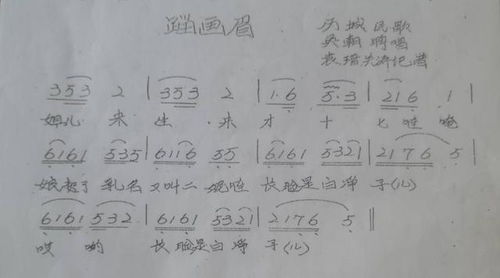 画眉
历城民歌
唱
记谱
353 2 | 353 2 | 1·6 5·3 | 216 1 |
姐儿 来 生 来 才 十 七 哇 咹
6161 535 | 6116 55 | 6161 5321 | 2176 5 |
娘起了 乳名 又叫二 妮哇 长脸是白净 子(儿)
6161 532 | 6161 5321 | 2176 5 ‖
哎 哟 长脸是白净 子(儿)